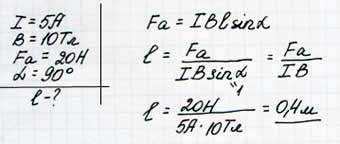 I = 5А
B = 10Тл
Fa = 20Н
α = 90°
l - ?
Fa = IBlsinα
l = Fa / IBsinα = Fa / IB
1
l = 20Н / 5А · 10Тл = 0,4м